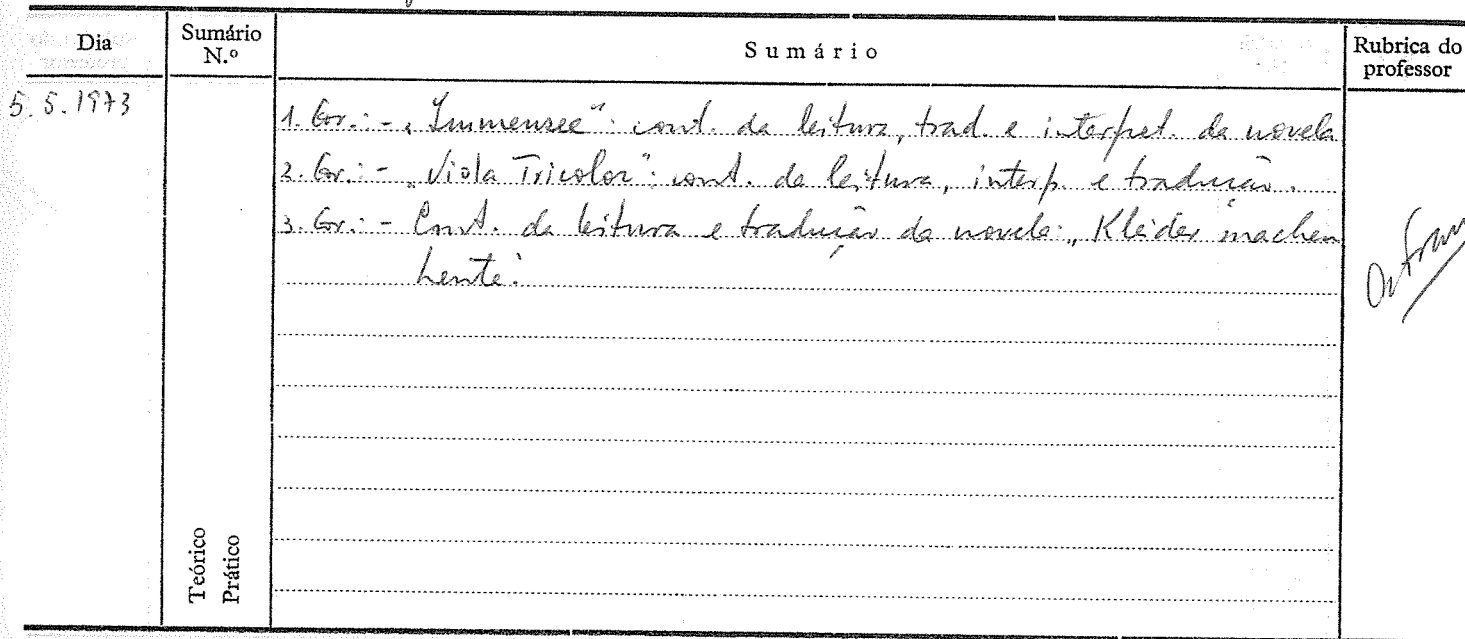 Dia
Sumário N.º
Sumário
Rubrica do professor
5.5.1973
1. Gr.: - „Immensee": cont. da leitura, trad. e interpret. da novela
2. Gr.: - „Viola Tricolor": cont. da leitura, interp. e tradução.
3. Gr.: - Cont. da leitura e tradução da novela: „Kleider machen
Leute".
Teórico
Prático